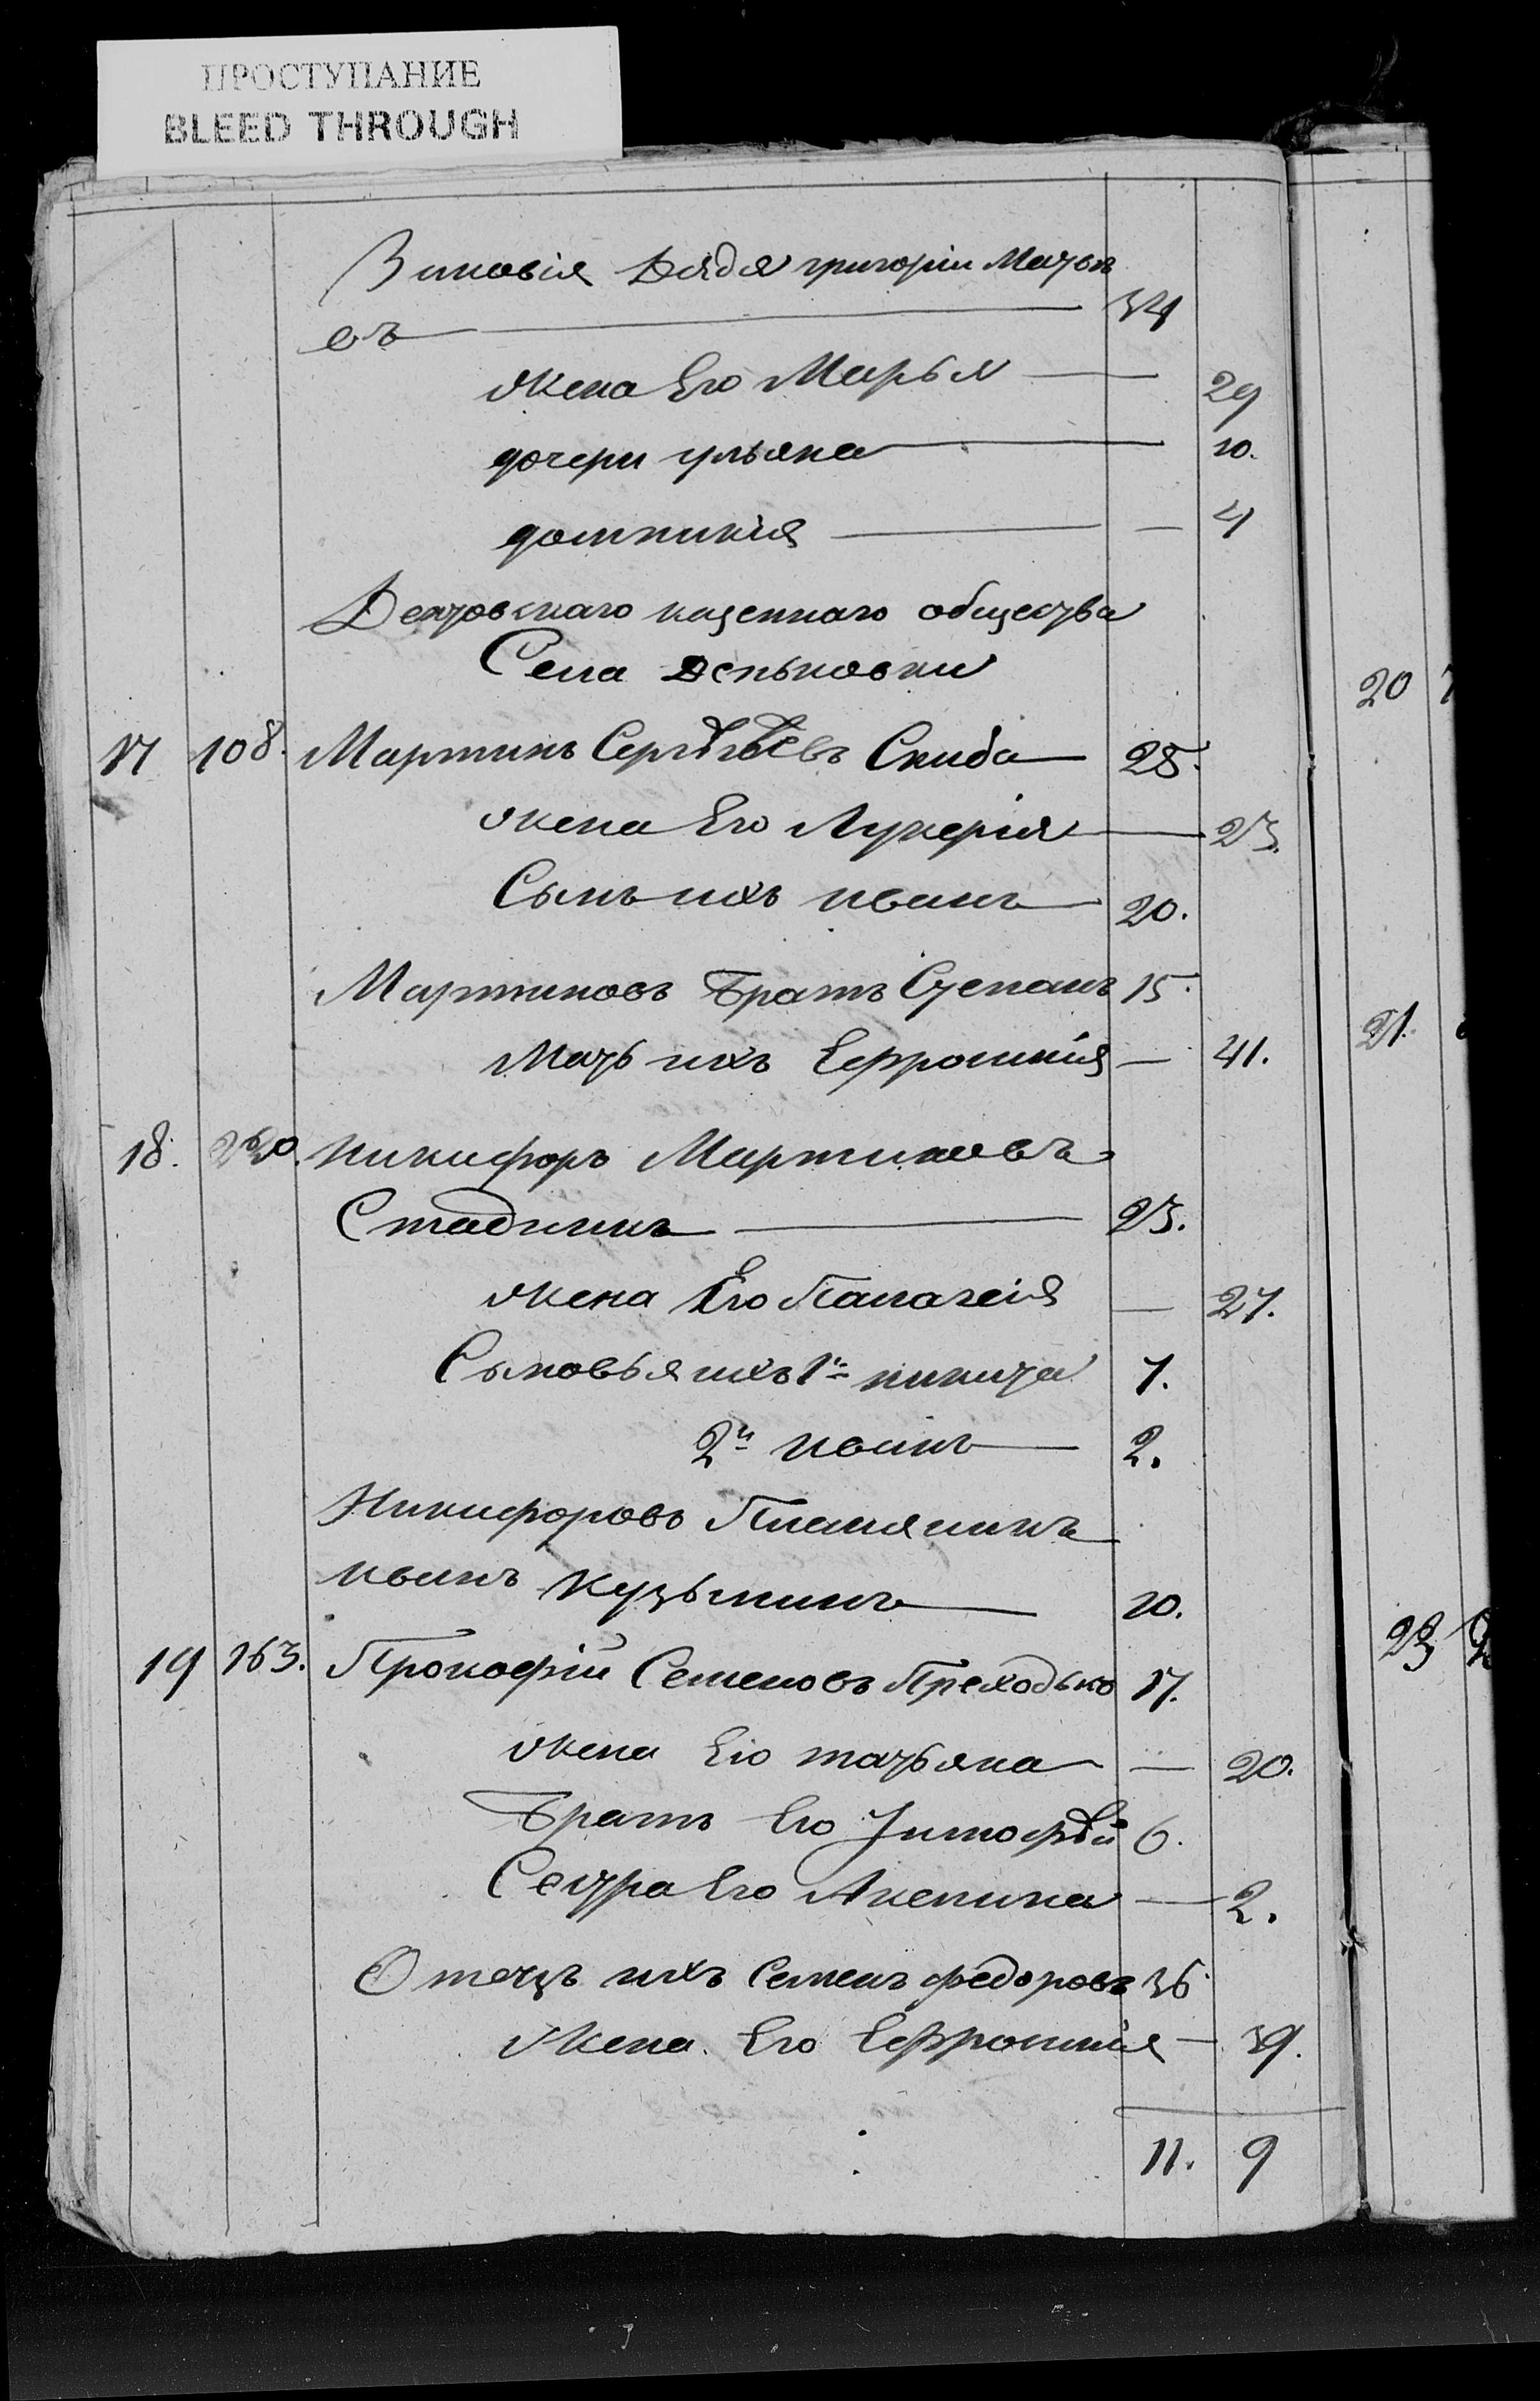 ПРОСТУПАНИЕ
BLEED THROUGH
Зиновія Дядя григорій Матве
евъ 34
жена Его Марья 29
дочери ульяна 10.
домникія 4
казеннаго общества
Села Деньковки
17 108. Мартинъ Сергѣевъ Скиба 25.
жена Его Лукерія 23.
Сынъ ихъ иванъ 20.
Мартиновъ Братъ Степанъ 15.
Мать ихъ Ефросинія 41.
18. никифоръ Мартиновъ
Стадникъ 23.
жена Его Палагеія 27.
Сыновья ихъ 1й никита 7.
2й иванъ 2.
Никифоровъ Племяникъ
иванъ Кузьминъ 10.
19 163. Прокофій Семеновъ Преходько 17.
жена Его татьяна 20.
Братъ Его Тимофѣй 6.
Сестра Его Акелина 2.
Отецъ ихъ Семенъ федоровъ 36.
Жена Его Ефросинія 39.
11. 9
20
21.
23